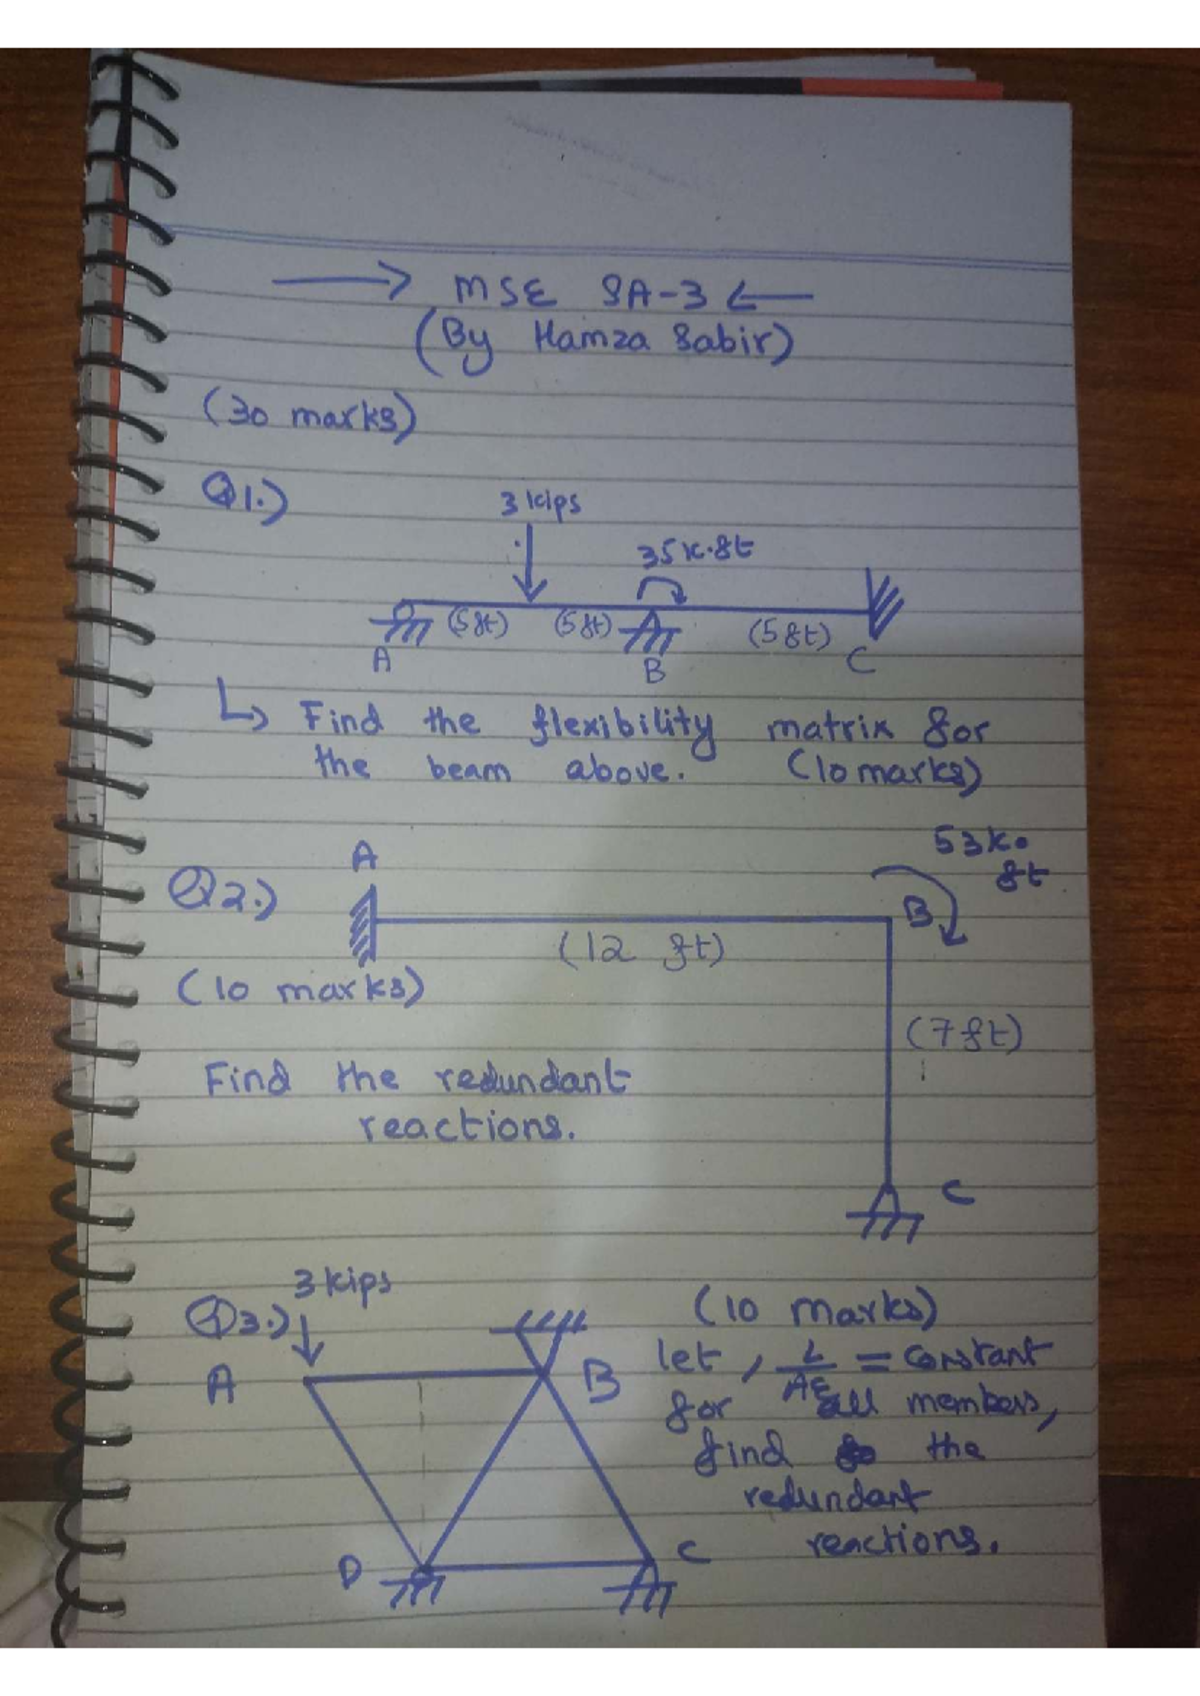 → MSE SA-3 ←
(By Hamza Sabir)
(30 marks)
Q1.)
3 kips
35 k.ft
(5ft) (5ft) (5ft)
A B C
↳ Find the flexibility matrix for
the beam above. (10 marks)
53 k.
ft
A
Q2.)
B
(12 ft)
(10 marks)
(7ft)
Find the redundant
reactions.
C
3 kips
Q3.)
(10 marks)
A B
let, L/AE = constant
for all members,
find the
redundant
reactions.
D C